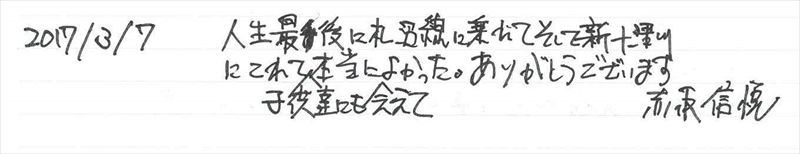 2017/3/7 人生最後に札沼線に乗れてそして新十津川
にこれて本当によかった。ありがとうございます
子供達にも会えて 赤坂信悦